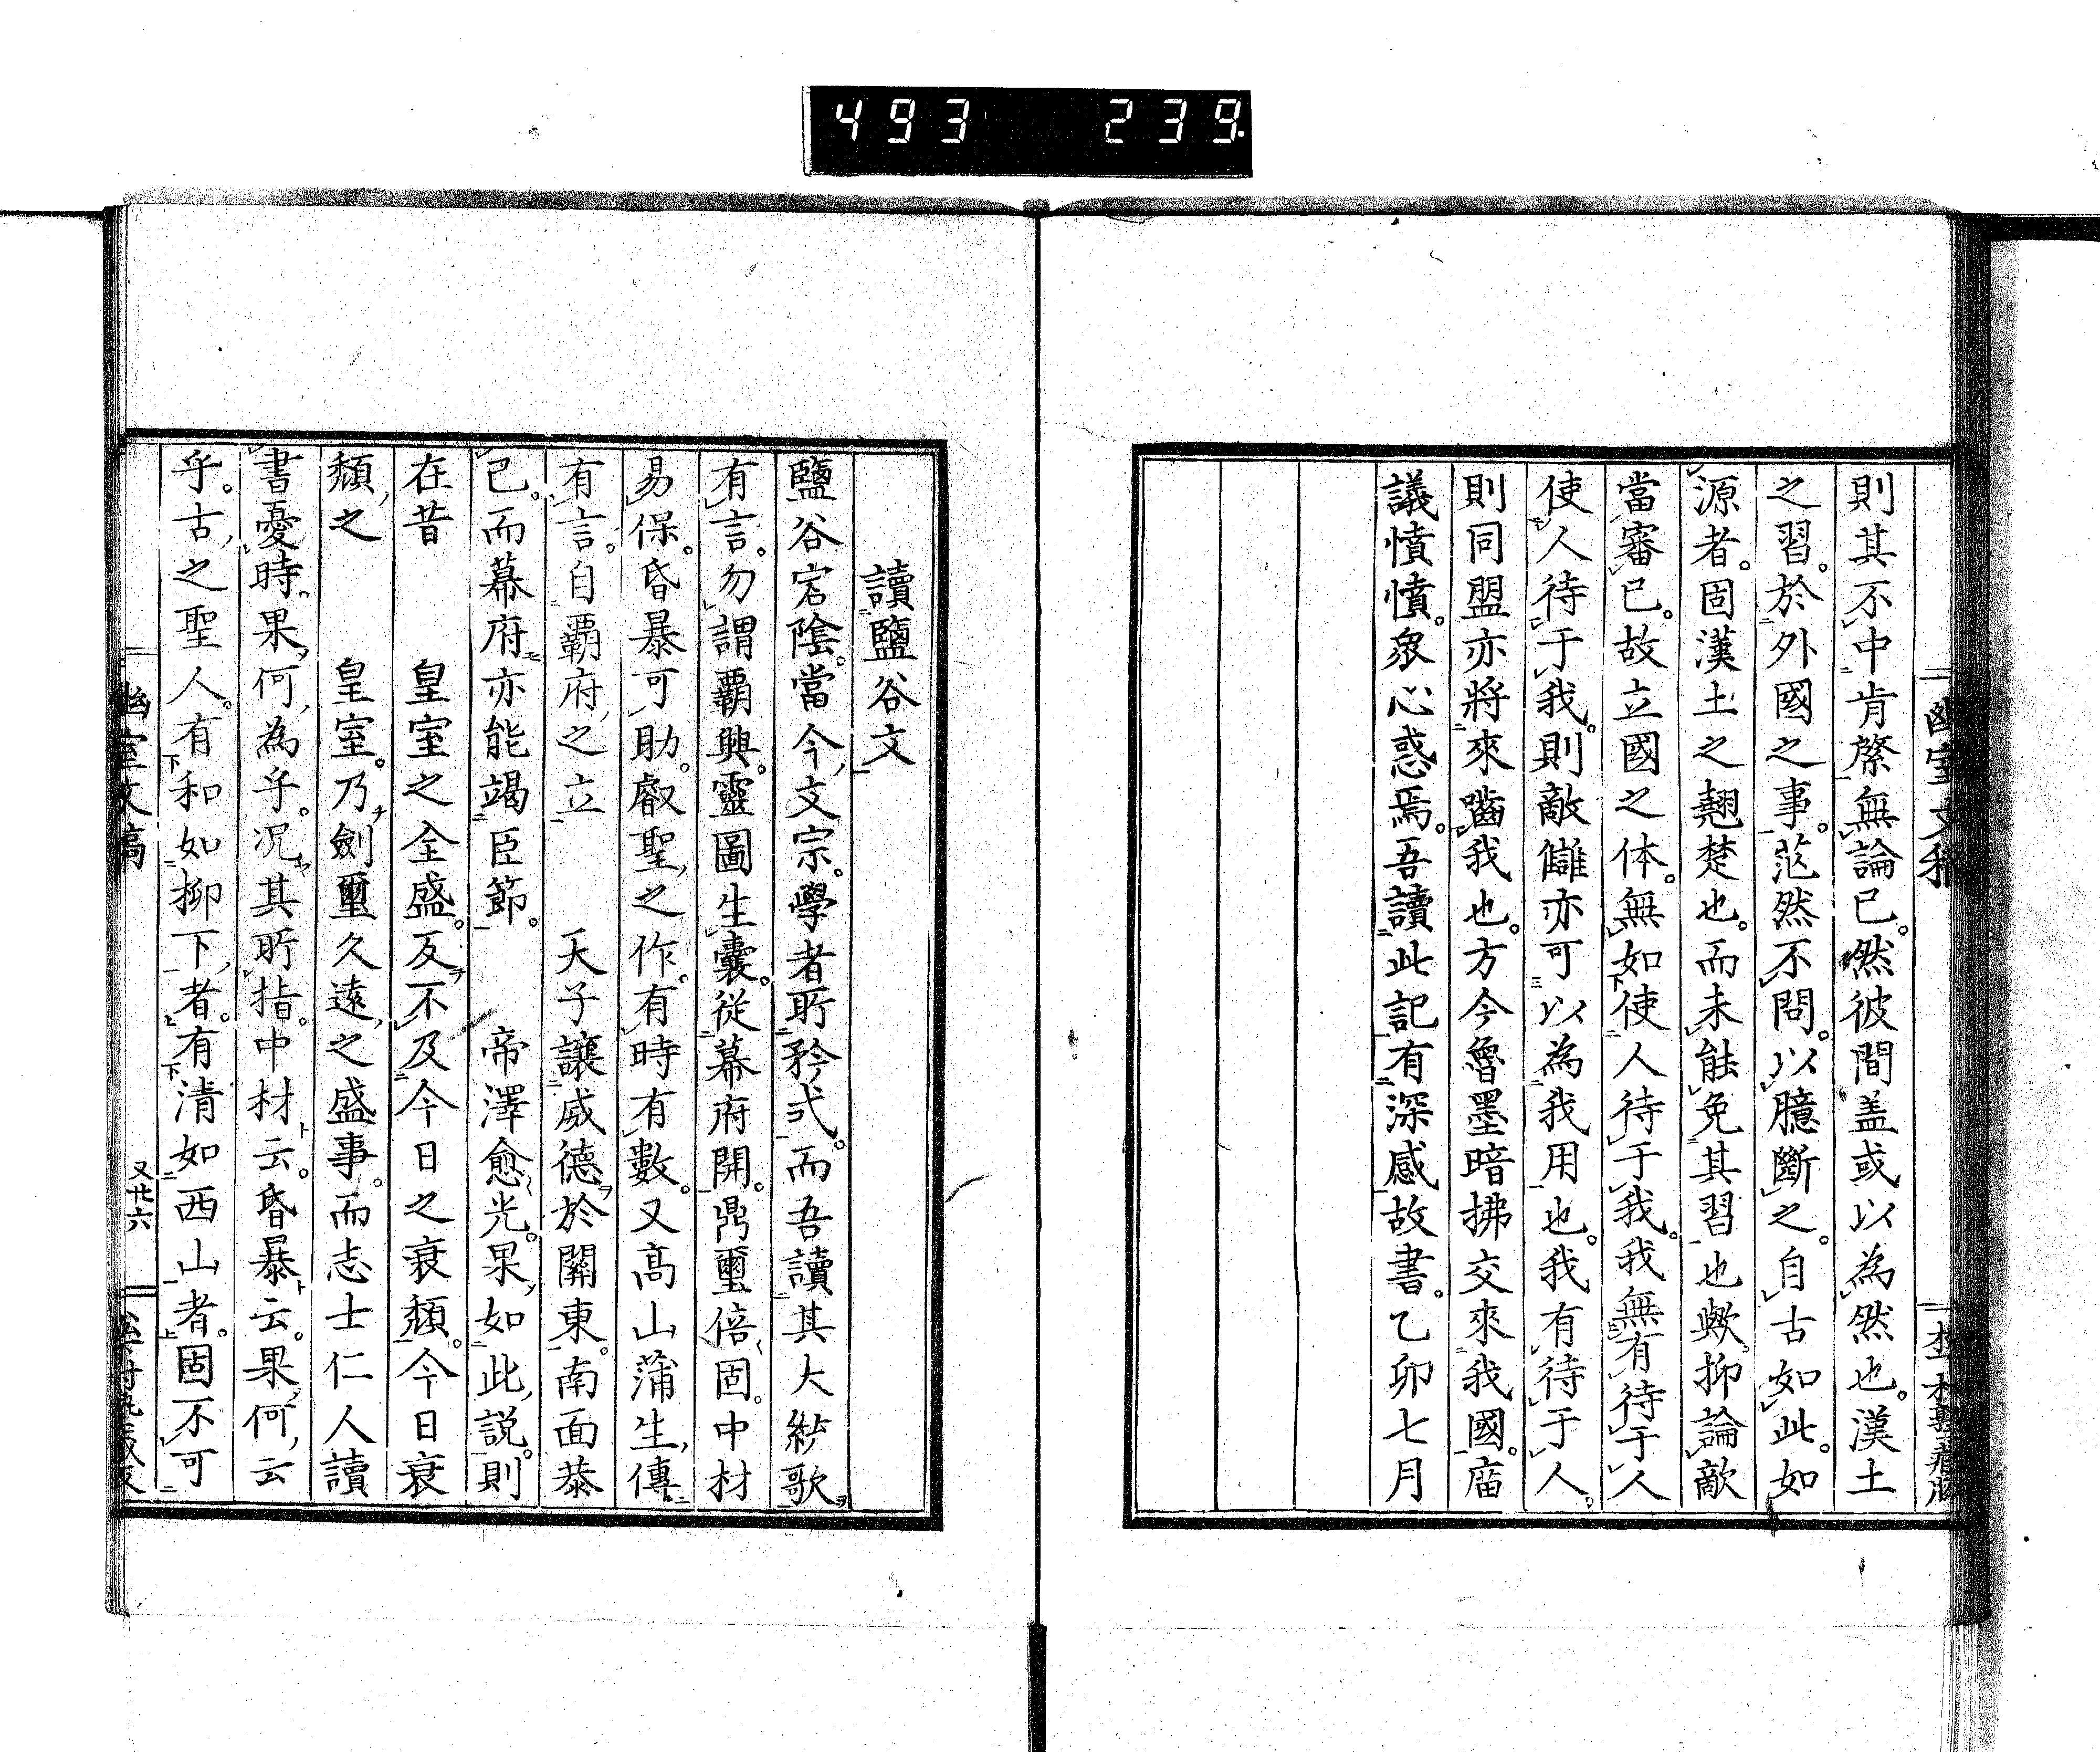 493 239.
則其不中肯綮無論已。然彼間盖或以為然也。漢土
之習。於外國之事。茫然不問。以臆斷之。自古如此。如
源者。固漢土之翹楚也。而未能免其習也歟。抑論敵
當審已。故立國之体。無如使人待于我。我無有待于人
使人待于我。則敵讎亦可以為我用也。我有待于人。
則同盟亦將來嚙我也。方今魯墨暗拂交來我國。庙
議憤憤。衆心惑焉。吾讀此記有深感故書。乙卯七月
讀鹽谷文
鹽谷宕陰。當今文宗。學者所矜式。而吾讀其大紗歌
有言。勿謂覇興。靈圖生嚢。從幕府開。鼎璽倍固。中材
易保。昏暴可助。叡聖之作。有時有數。又高山蒲生傳
有言。自覇府之立 天子讓威德於關東。南面恭
已。而幕府亦能竭臣節。 帝澤愈光。果如此說。則
在昔 皇室之全盛。反不及今日之衰頽。今日衰
頽之 皇室。乃劍璽久遠之盛事。而志士仁人讀
書憂時。果何為乎。况其所指。中材云。昏暴云。果何云
乎。古之聖人。有和如柳下者。有清如西山者。固不可
幽室文稿
又廿六